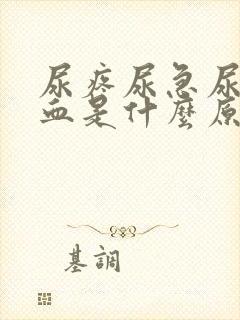 尿疼尿急尿
血是什麼原
基調